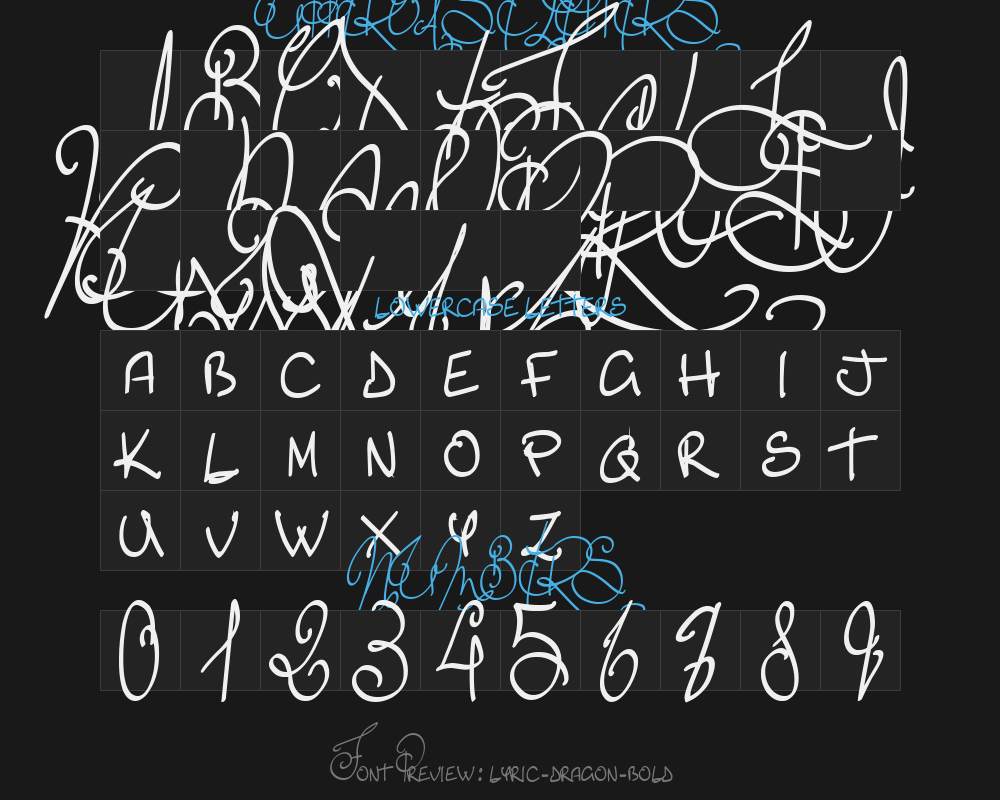 A B C D E F G H I J
K L M N O P Q R S T
LOWERCASE LETTERS
A B C D E F G H I J
K L M N O P Q R S T
U V W X Y Z
NUMBERS
0 1 2 3 4 5 6 7 8 9
Font Preview: LYRIC-DRAGON-BOLD